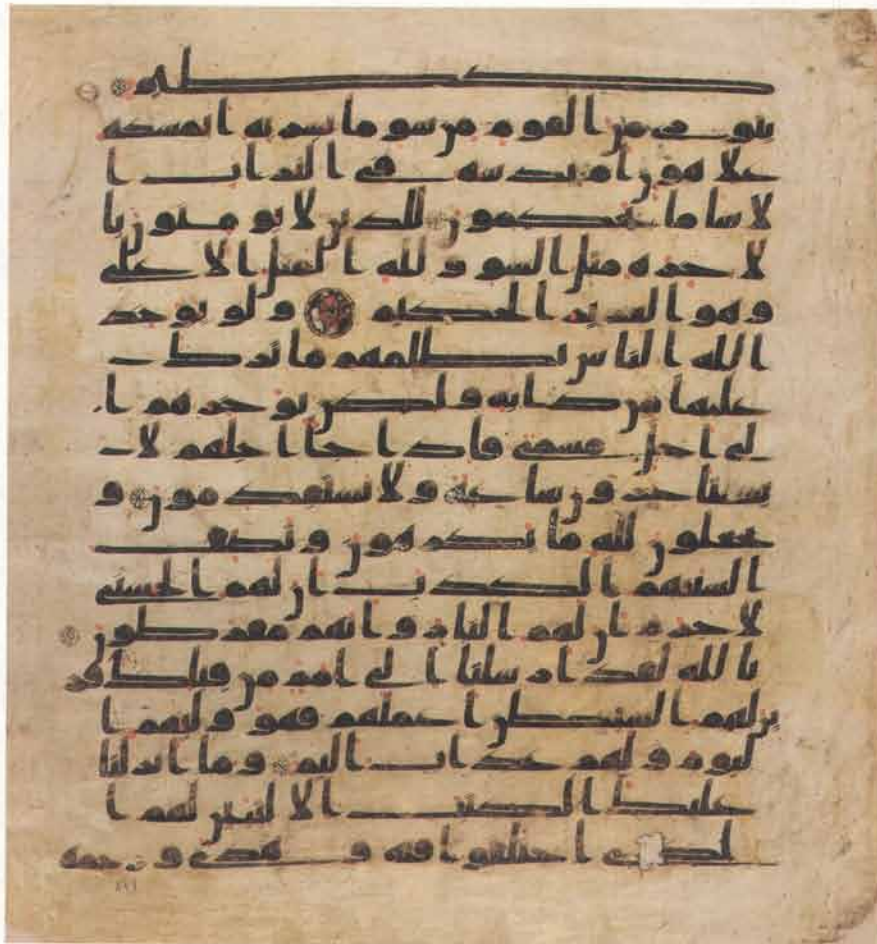 كظيم
يتورى من القوم من سو ما بشر به ايمسكه
على هون ام يدسه في التراب ا
لا سا ما يحكمون للذين لا يومنون با
لاخره مثل السو ولله المثل الاعلى
وهو العزيز الحكيم ولو يوخذ
الله الناس بظلمهم ما ترك
عليها من دابه ولكن يوخرهم ا
لى اجل مسمى فاذا جا اجلهم لا
يستاخرون ساعه ولا يستقدمون و
يجعلون لله ما يكرهون وتصف
السنتهم الكذب ان لهم الحسنى
لا جرم ان لهم النار وانهم مفرطون
تالله لقد ارسلنا الى امم من قبلك فز
ين لهم الشيطن اعملهم فهو وليهم ا
ليوم ولهم عذاب اليم وما انزلنا
عليك الكتب الا لتبين لهم ا
لذى اختلفوا فيه وهدى ورحمه